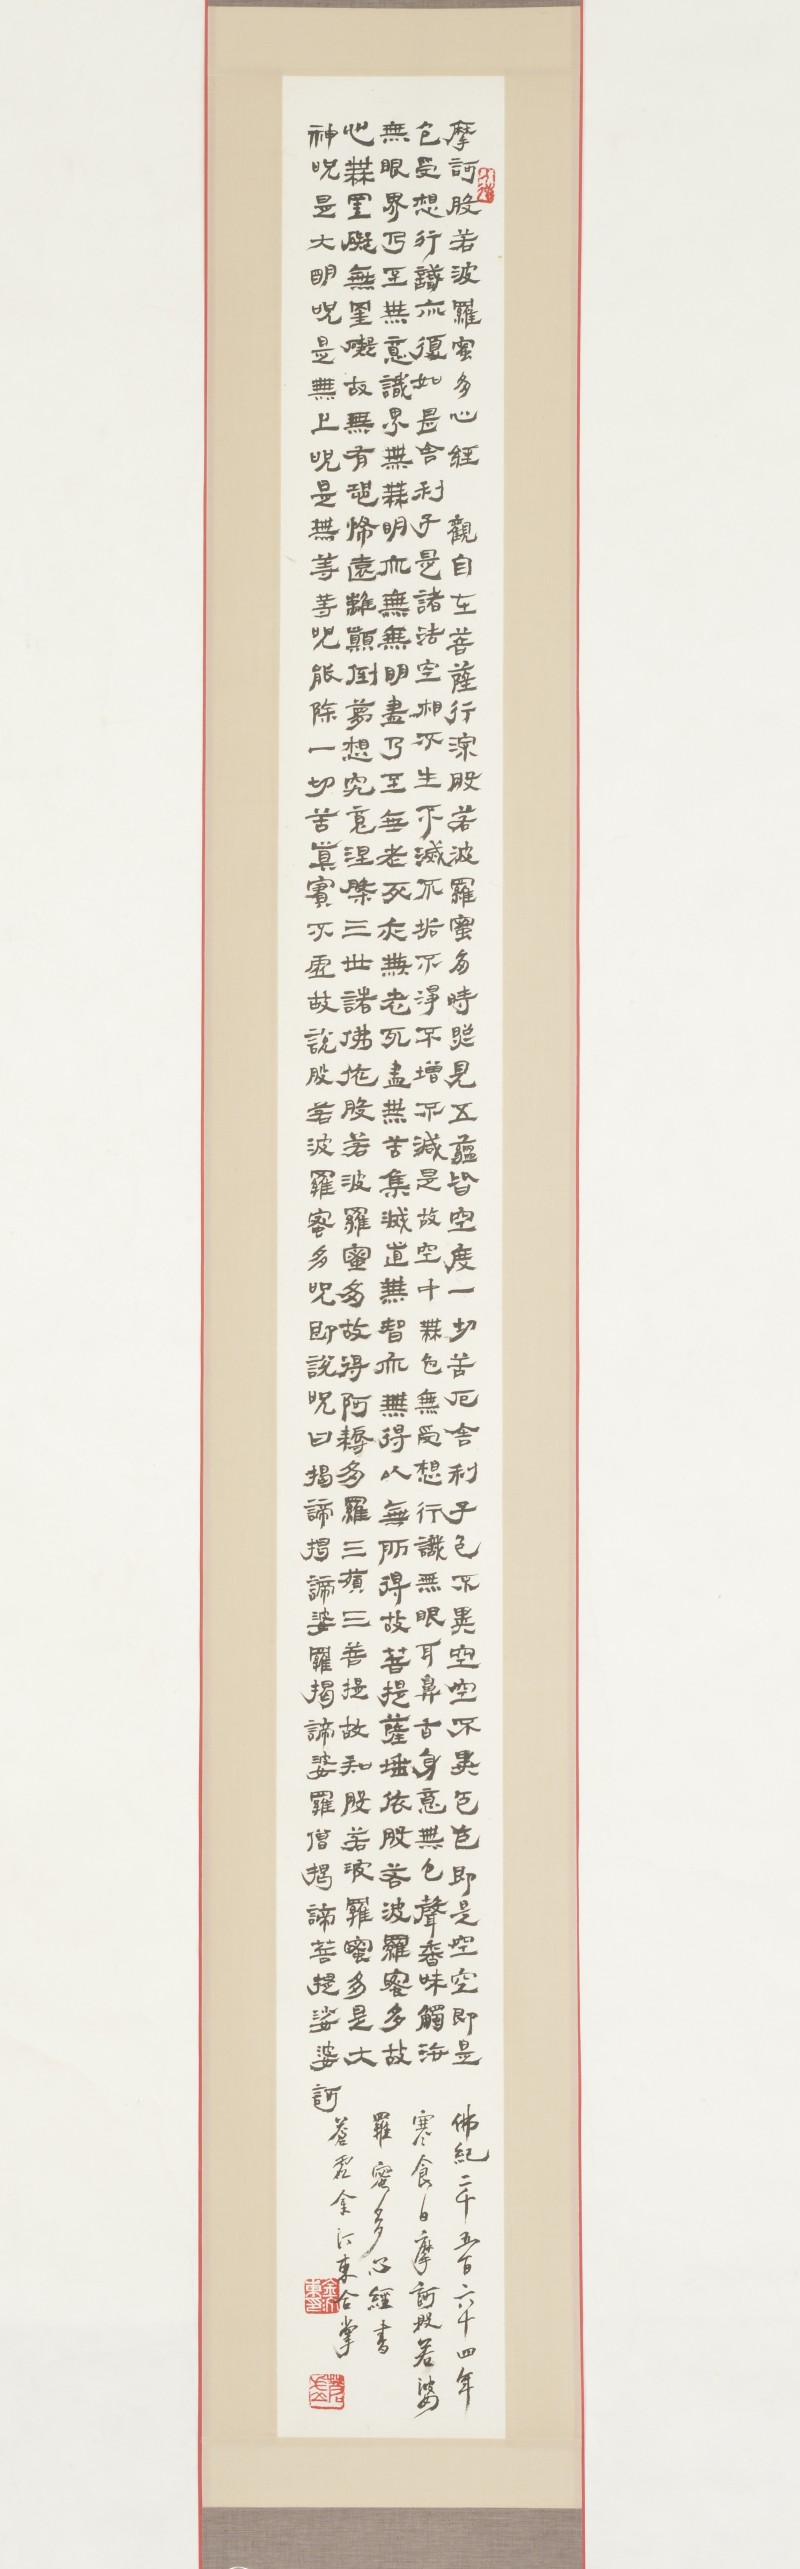 摩訶般若波羅蜜多心經 觀自在菩薩行深般若波羅蜜多時照見五蘊皆空度一切苦厄舍利子色不異空空不異色色即是空空即是
色受想行識亦復如是舍利子是諸法空相不生不滅不垢不淨不增不減是故空中無色無受想行識無眼耳鼻舌身意無色聲香味觸法
無眼界乃至無意識界無無明亦無無明盡乃至無老死亦無老死盡無苦集滅道無智亦無得以無所得故菩提薩埵依般若波羅蜜多故
心無罣礙無罣礙故無有恐怖遠離顚倒夢想究竟涅槃三世諸佛依般若波羅蜜多故得阿耨多羅三藐三菩提故知般若波羅蜜多是大
神呪是大明呪是無上呪是無等等呪能除一切苦眞實不虛故說般若波羅蜜多呪即說呪曰揭諦揭諦婆羅揭諦婆羅僧揭諦菩提娑婆訶
佛紀二千五百六十四年
寒食日摩訶般若婆
羅蜜多心經書
金江東合掌